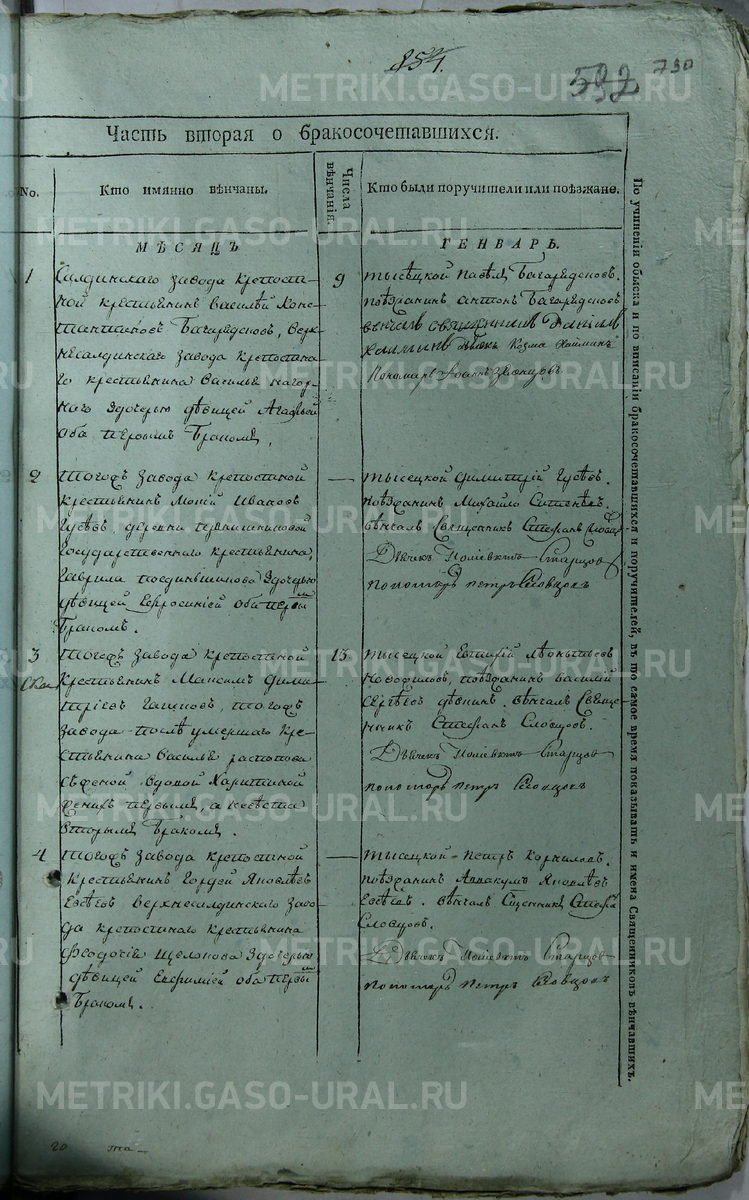 854.
592 730
Часть вторая о бракосочетавшихся.
No.
Кто имянно вѣнчаны.
Числа вѣнчанія.
Кто были поручители или поѣзжане.
МѢСЯЦЪ
ГЕНВАРЬ.
1
Салдинскаго завода крепост-
ной крестьянинъ Василѣй Конс-
тантиновъ Багаредсковъ, Верх-
несалдинскаго завода крепостна-
го крестьянина Василья нагор-
наго здочерью дѣвицей Агафьей
оба первымъ бракомъ,
9
тысецкой Павелъ Багаредсковъ.
поѣзжанинъ антонъ Багаредсковъ
вѣнчалъ священникъ
Дьячекъ Козма Хаминъ
Пономарь Іоаннъ Звонцовъ
2
тогожъ завода крепостной
крестьянинъ Мокий Ивановъ
Гусевъ, деревни
государственнаго крестьянина,
Гаврила здочерью
дѣвицей Евфросинией оба первы
мъ
бракомъ.
—
тысецкой димитрий Гусевъ.
поѣзжанинъ Михайло
вѣнчалъ Священникъ Стефанъ Словцо
Дьячекъ Полиевктъ Старцов
пономарь петръ Словцовъ
3
тогожъ завода крепостной
крестьянинъ Максимъ дими-
триевъ тогожъ
завода послѣ умершаго кре-
стьянина Василья распопова
женой вдовой Харитиной
женихъ первымъ, а невѣста
вторымъ бракомъ.
13
тысецкой Евтихий лѣонтьевъ
поѣзжанинъ василий
сѣргѣевъ вѣнчалъ Свяще-
нникъ Стефанъ Словцовъ.
Дьячекъ Полиевктъ Старцов
пономарь петръ Словцовъ
4
тогожъ завода крепостной
крестьянинъ Гордей Яковлевъ
Евсѣевъ Верхнесалдинскаго заво-
да крепостнаго крестьянина
Феодосия здочерью
дѣвицей Евфимией оба первы
мъ
бракомъ.
—
тысецкой Петръ Корниловъ.
поѣзжанинъ Аввакумъ Яковлевъ
Евсѣевъ. вѣнчалъ Сщенникъ Стефа
Словцовъ.
Дьячекъ Полиевктъ Старцов
пономарь петръ Словцовъ
По учиненіи обыска и по вписаніи бракосочетавшихся и поручителей, въ то самое время показывать и имена Священниковъ вѣнчавшихъ.
20
METRIKI.GASO-URAL.RU